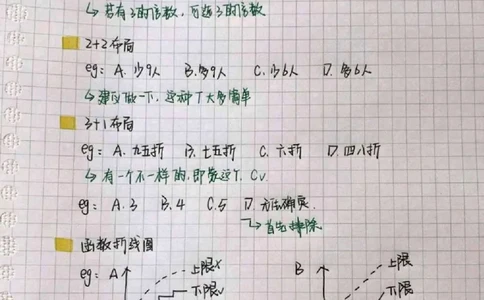 ↳ 若有3的倍数，可选3的倍数
2+2布局
eg: A. 少9人 B. 多9人 C. 少6人 D. 多6人
↳ 建议做一下，这种T大多简单
3+1布局
eg: A. 九五折 B. 七五折 C. 六折 D. 四八折
↳ 有一个不一样的，即蒙这个. C✓
eg: A. 3 B. 4 C. 5 D. 无法确定.
↳ 首先排除
函数折线图
eg: A 上限× B 上限
下限✓ 下限